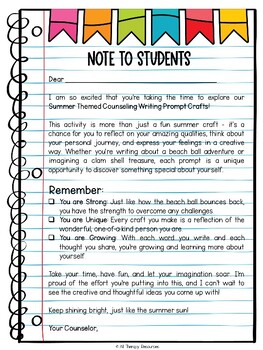 NOTE TO STUDENTS
Dear
I am so excited that you're taking the time to explore our
Summer Themed Counseling Writing Prompt Crafts!
This activity is more than just a fun summer craft - it's a
chance for you to reflect on your amazing qualities, think about
your personal journey, and express your feelings in a creative
way. Whether you're writing about a beach ball adventure or
imagining a clam shell treasure, each prompt is a unique
opportunity to discover something special about yourself.
Remember:
You are Strong: Just like how the beach ball bounces back,
you have the strength to overcome any challenges.
You are Unique: Every craft you make is a reflection of the
wonderful, one-of-a-kind person you are.
You are Growing: With each word you write and each
thought you share, you're growing and learning more about
yourself.
Take your time, have fun, and let your imagination soar. I'm
proud of the effort you're putting into this, and I can't wait to
see the creative and thoughtful ideas you come up with!
Keep shining bright, just like the summer sun!
Your Counselor,
© All Therapy Resources